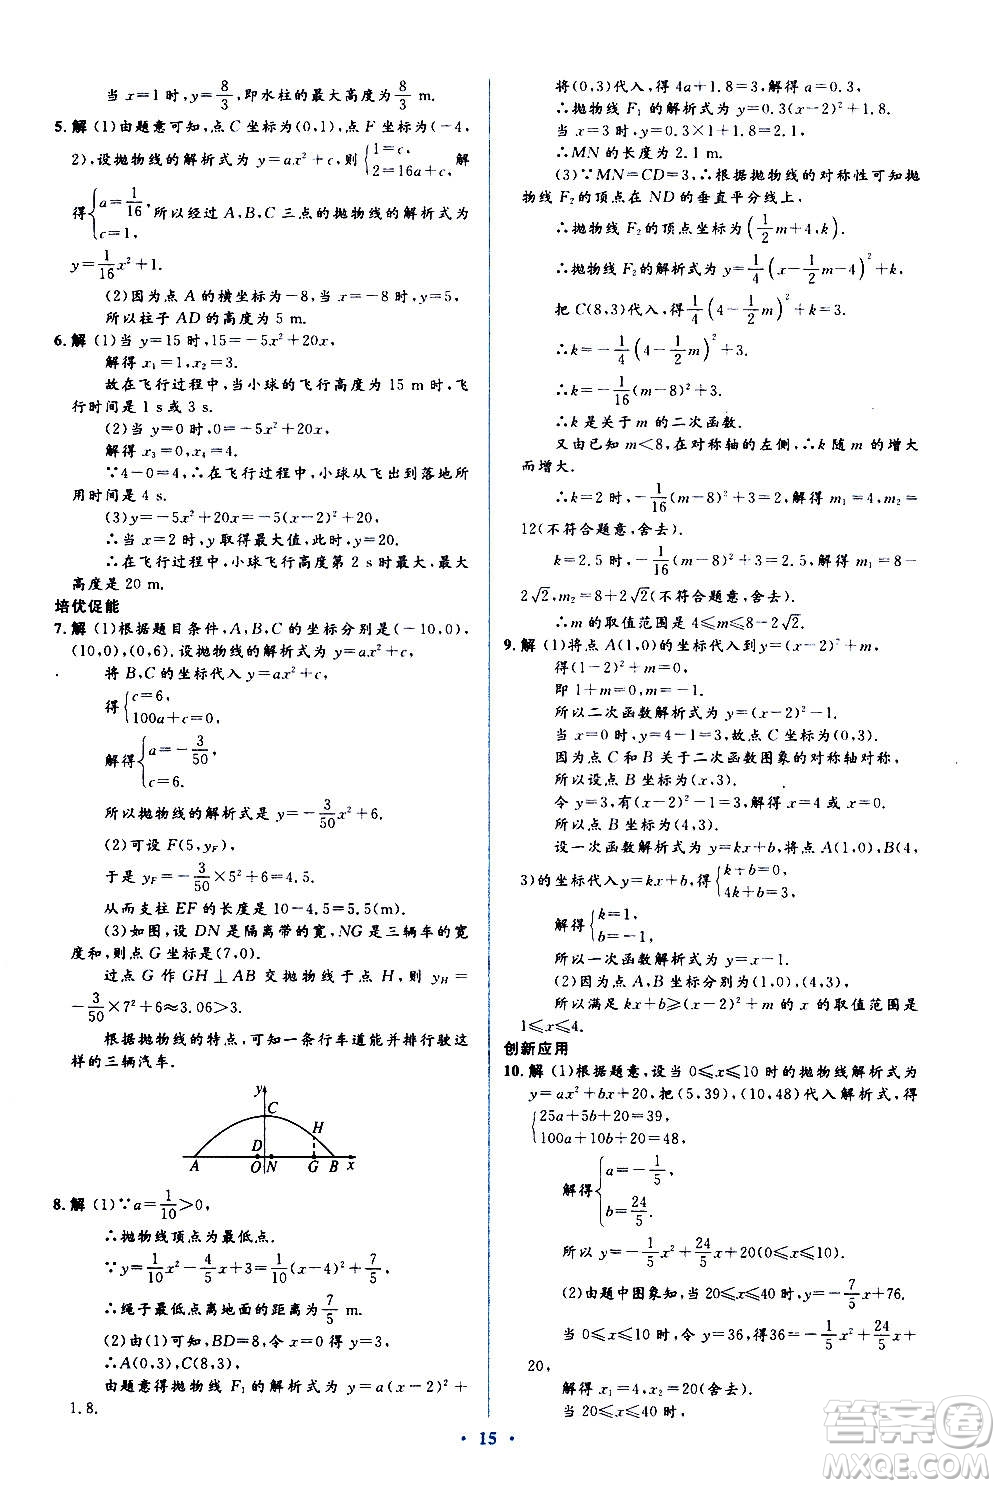 当 x=1 时,y=8/3,即水柱的最大高度为 8/3 m.
5. 解 (1)由题意可知,点 C 坐标为(0,1),点 F 坐标为(-4,
2),设抛物线的解析式为 y=ax²+c,则{1=c, 2=16a+c, 解
得{a=1/16, c=1, 所以经过 A,B,C 三点的抛物线的解析式为
y=1/16x²+1.
(2)因为点 A 的横坐标为-8,当 x=-8 时,y=5,
所以柱子 AD 的高度为 5 m.
6. 解 (1)当 y=15 时,15=-5x²+20x,
解得 x₁=1,x₂=3.
故在飞行过程中,当小球的飞行高度为 15 m 时,飞
行时间是 1 s 或 3 s.
(2)当 y=0 时,0=-5x²+20x,
解得 x₃=0,x₄=4.
∵4-0=4,∴在飞行过程中,小球从飞出到落地所
用时间是 4 s.
(3)y=-5x²+20x=-5(x-2)²+20,
∴当 x=2 时,y 取得最大值,此时,y=20.
∴在飞行过程中,小球飞行高度第 2 s 时最大,最大
高度是 20 m.
培优促能
7. 解 (1)根据题目条件,A,B,C 的坐标分别是(-10,0),
(10,0),(0,6).设抛物线的解析式为 y=ax²+c,
将 B,C 的坐标代入 y=ax²+c,
得{c=6, 100a+c=0,
解得{a=-3/50, c=6.
所以抛物线的解析式为 y=-3/50x²+6.
(2)可设 F(5,y_F),
于是 y_F=-3/50×5²+6=4.5,
从而支柱 EF 的长度是 10-4.5=5.5(m).
(3)如图,设 DN 是隔离带的宽,NG 是三辆车的宽
度和,则点 G 坐标是(7,0).
过点 G 作 GH⊥AB 交抛物线于点 H,则 y_H=
-3/50×7²+6≈3.06>3.
根据抛物线的特点,可知一条行车道能并排行驶这
样的三辆汽车.
y
C
H
D
A O N G B x
8. 解 (1)∵a=1/10>0,
∴抛物线顶点为最低点.
∵y=1/10x²-4/5x+3=1/10(x-4)²+7/5,
∴绳子最低点离地面的距离为7/5 m.
(2)由(1)可知,BD=8,令 x=0 得 y=3,
∴A(0,3),C(8,3).
由题意得抛物线 F₁ 的解析式为 y=a(x-2)²+
1.8.
将(0,3)代入,得 4a+1.8=3,解得 a=0.3,
∴抛物线 F₁ 的解析式为 y=0.3(x-2)²+1.8.
当 x=3 时,y=0.3×1+1.8=2.1,
∴MN 的长度为 2.1 m.
(3)∵MN=CD=3,∴根据抛物线的对称性可知抛
物线 F₂ 的顶点在 ND 的垂直平分线上,
∴抛物线 F₂ 的顶点坐标为(1/2m+4,k).
∴抛物线 F₂ 的解析式为 y=1/4(x-1/2m-4)²+k.
把 C(8,3)代入,得1/4(4-1/2m)²+k=3.
∴k=-1/4(4-1/2m)²+3.
∴k=-1/16(m-8)²+3.
∴k 是关于 m 的二次函数.
又由已知 m<8,在对称轴的左侧,∴k 随 m 的增大
而增大.
∴k=2 时,-1/16(m-8)²+3=2,解得 m₁=4,m₂=
12(不符合题意,舍去).
k=2.5 时,-1/16(m-8)²+3=2.5,解得 m₁=8-
2√2,m₂=8+2√2(不符合题意,舍去).
∴m 的取值范围是 4≤m≤8-2√2.
9. 解 (1)将点 A(1,0)的坐标代入到 y=(x-2)²+m,
得(1-2)²+m=0.
即 1+m=0,m=-1.
所以二次函数解析式为 y=(x-2)²-1.
当 x=0 时,y=4-1=3,故点 C 坐标为(0,3).
因为点 C 和 B 关于二次函数图象的对称轴对称,
所以设点 B 坐标为(x,3).
令 y=3,有(x-2)²-1=3,解得 x=4 或 x=0.
所以点 B 坐标为(4,3).
设一次函数解析式为 y=kx+b,将点 A(1,0),B(4,
3)的坐标代入 y=kx+b,得{k+b=0, 4k+b=3,
解得{k=1, b=-1.
所以一次函数解析式为 y=x-1.
(2)因为点 A,B 坐标分别为(1,0),(4,3),
所以满足 kx+b≥(x-2)²+m 的 x 的取值范围是
1≤x≤4.
创新应用
10. 解 (1)根据题意,设当 0≤x≤10 时的抛物线解析式为
y=ax²+bx+20,把(5,39),(10,48)代入解析式,得
{25a+5b+20=39, 100a+10b+20=48,
解得{a=-1/5, b=24/5.
所以 y=-1/5x²+24/5x+20(0≤x≤10).
(2)由题中图象知,当 20≤x≤40 时,y=-7/5x+76.
当 0≤x≤10 时,令 y=36,得36=-1/5x²+24/5x+
20,
解得 x₁=4,x₂=20(舍去).
当 20≤x≤40 时,
• 15 •
答案圈
MXQE.COM